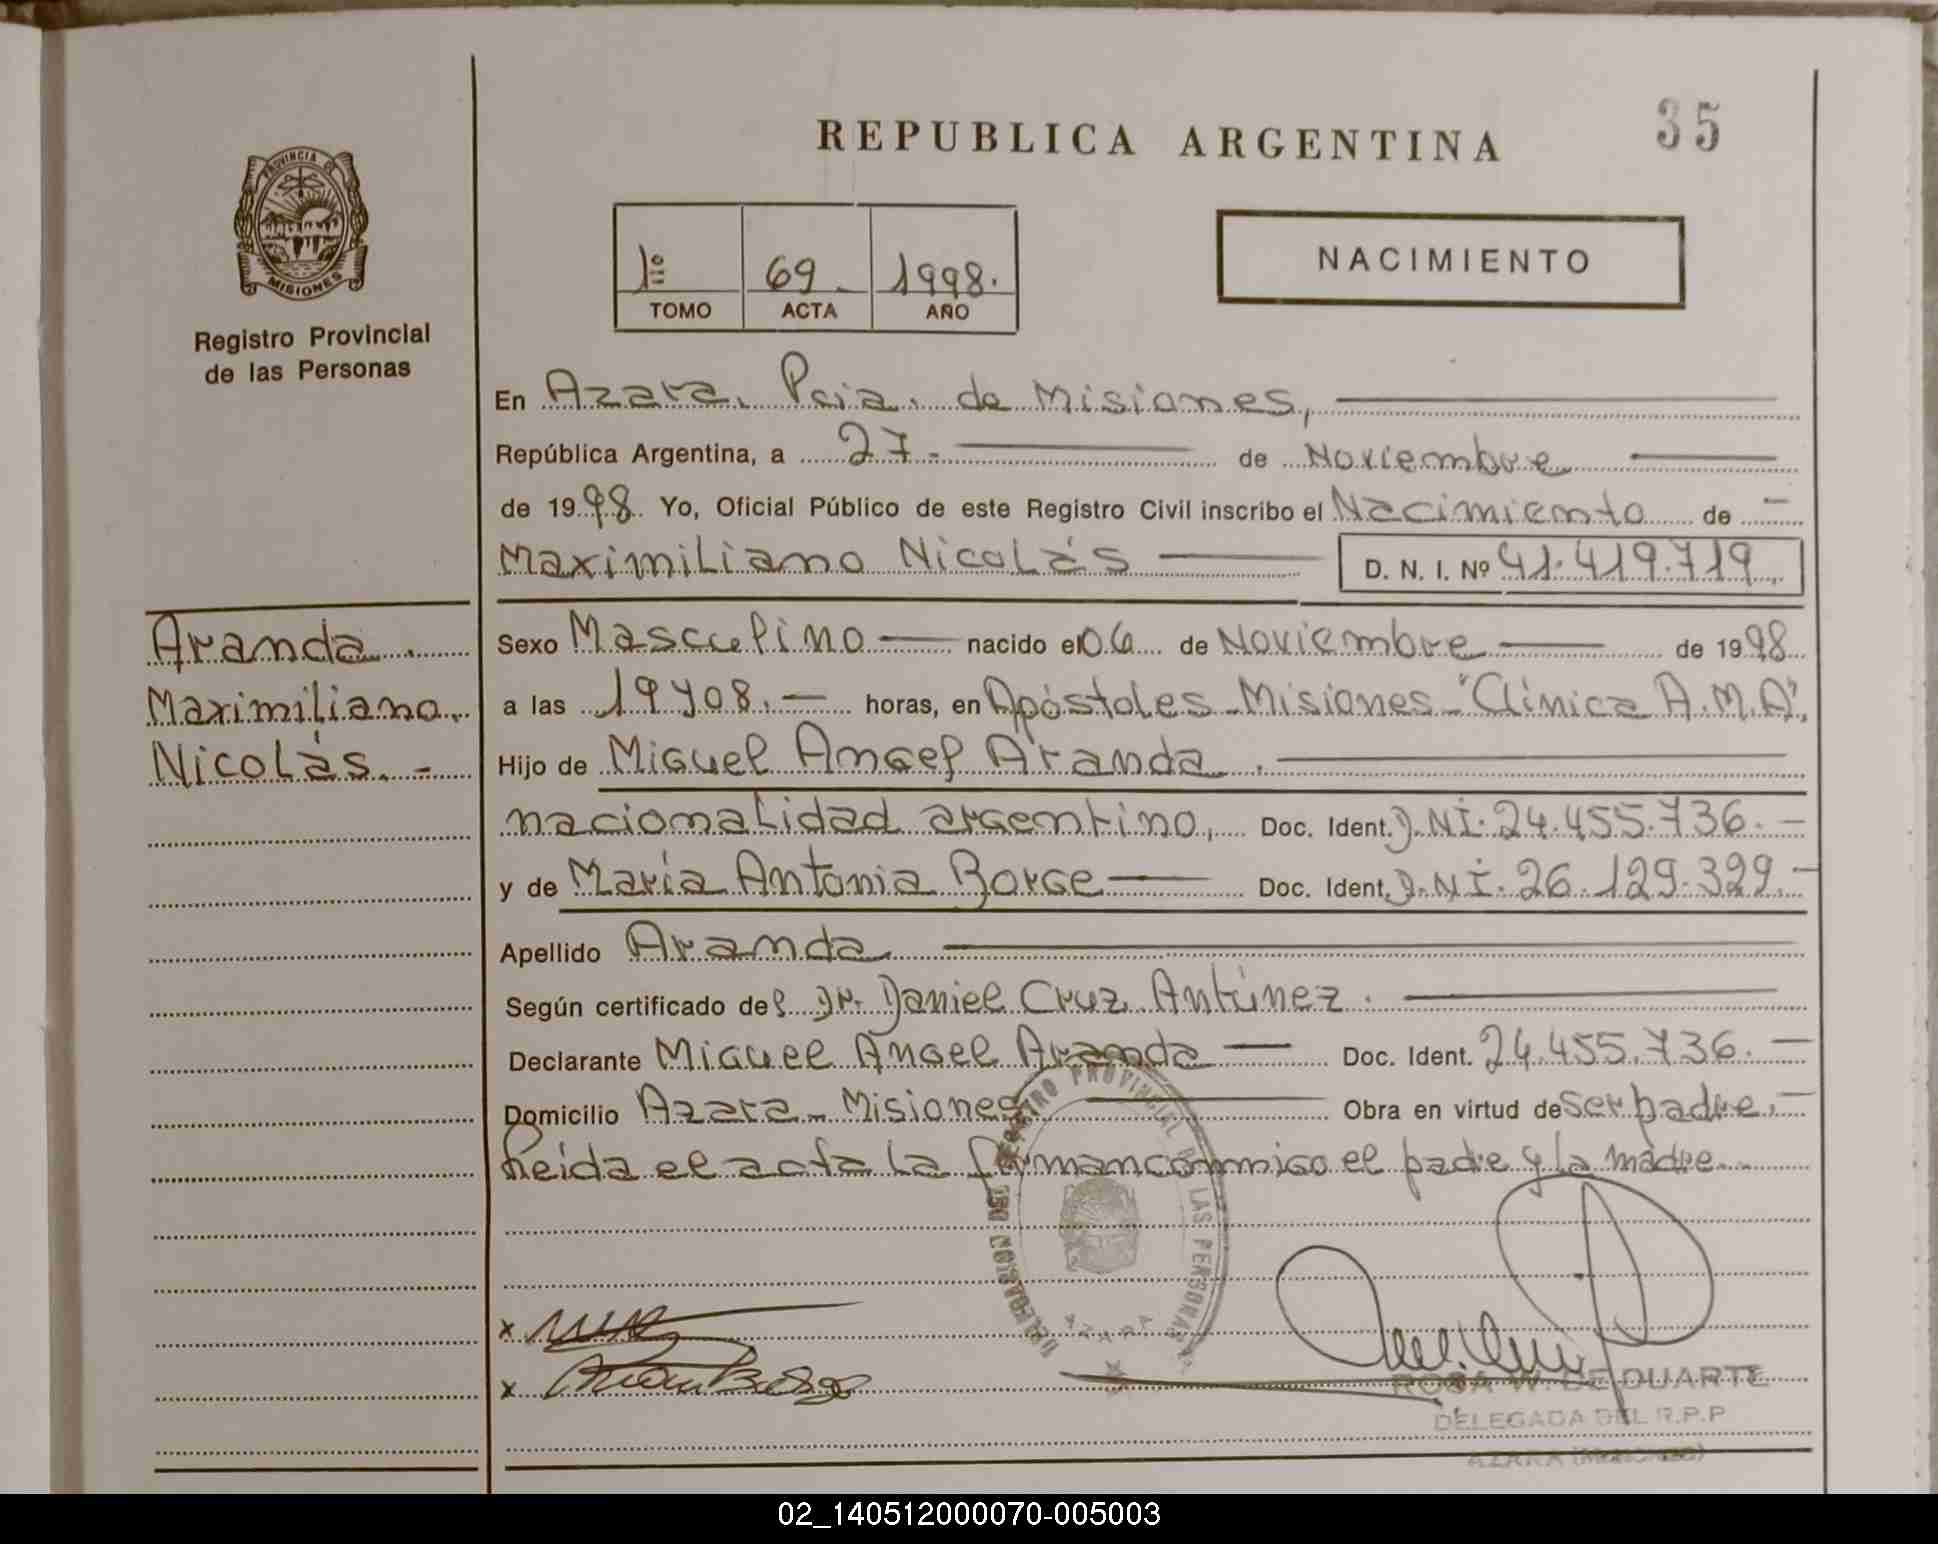 REPUBLICA ARGENTINA
35
PROVINCIA DE
MISIONES
Registro Provincial
de las Personas
1º 69 1998.
TOMO ACTA AÑO
NACIMIENTO
En Azara. Pcia. de Misiones,
República Argentina, a 27- de Noviembre
de 1998 Yo, Oficial Público de este Registro Civil inscribo el Nacimiento de -
Maximiliano Nicolás D. N. I. Nº 41.419.719
Aranda.
Maximiliano.
Nicolás. -
Sexo Masculino nacido el 06 de Noviembre de 1998
a las 19 y 08. horas, en Apóstoles - Misiones - "Clínica A.M.A",
Hijo de Miguel Angel Aranda.
nacionalidad argentino, Doc. Ident. D.N.I. 24.455.736. -
y de María Antonia Borge Doc. Ident. D.N.I. 26.129.329. -
Apellido Aranda
Según certificado del Dr. Daniel Cruz Antúnez.
Declarante Miguel Angel Aranda Doc. Ident. 24.455.736. -
Domicilio Azara - Misiones Obra en virtud de ser padre. -
Leida el acta la firman conmigo el padre y la madre
DELEGACION DEL REGISTRO PROVINCIAL DE LAS PERSONAS
AZARA
x
x
ROSA W. DE DUARTE
DELEGADA DEL R.P.P
AZARA (Misiones)
02_140512000070-005003